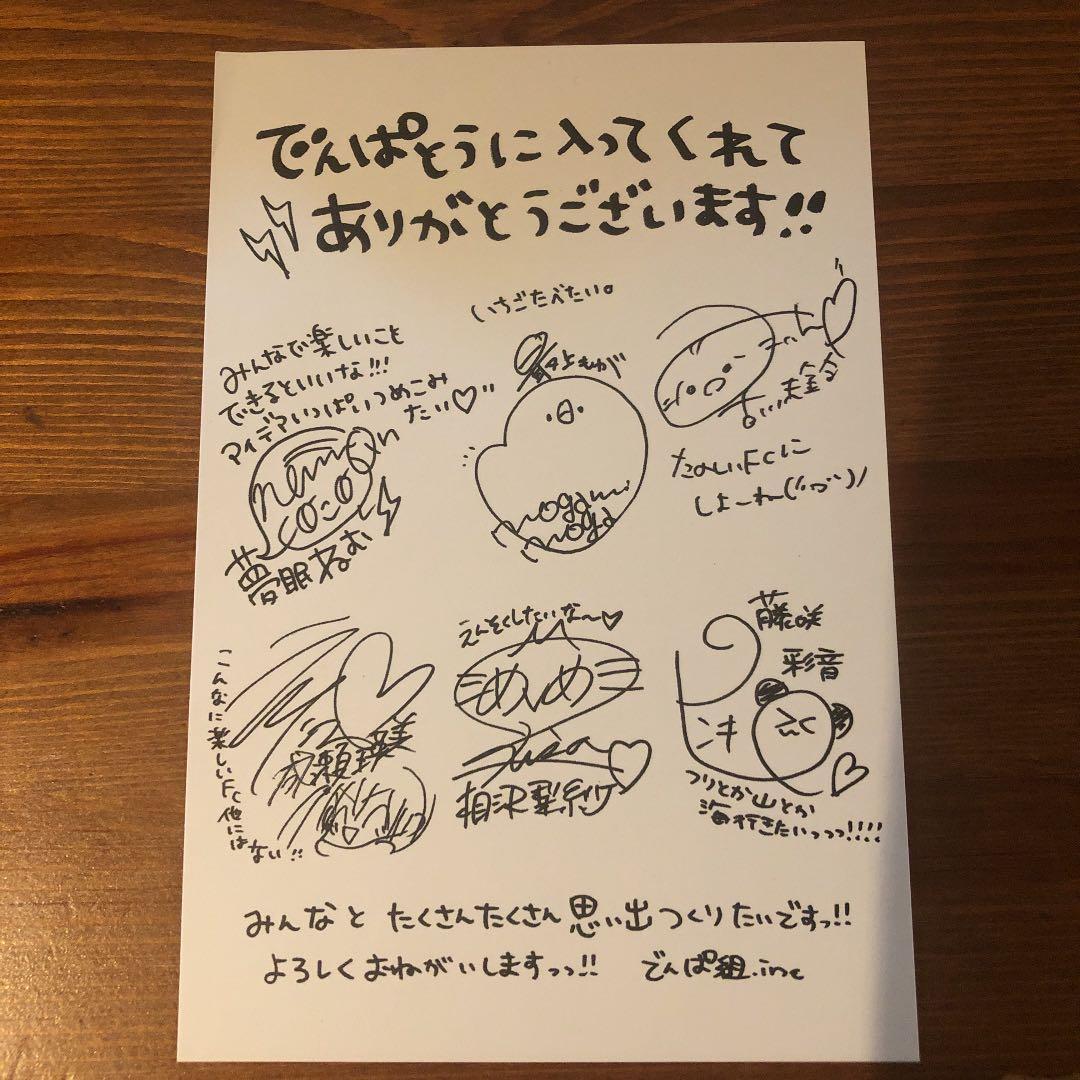 でんぱとうに入ってくれて
ありがとうございます!!
いちごたべたい。
みんなで楽しいこと
できるといいな!!!
アイデアいっぱいつめこみ
たい♡
nemu
Qn
夢眠ねむ
最上もが
mogami
moga
たのしいFCに
しよーねー(
えんそくしたいな〜♡
こんなに楽しいFC他にはない!!
成瀬瑛美
めいめ
Risa
相沢梨紗
藤咲
彩音
ピンキ
つりとか山とか
海行きたいっっっ!!!!
みんなと たくさんたくさん思い出つくりたいですっ!!
よろしくおねがいしますっっ!! でんぱ組.inc